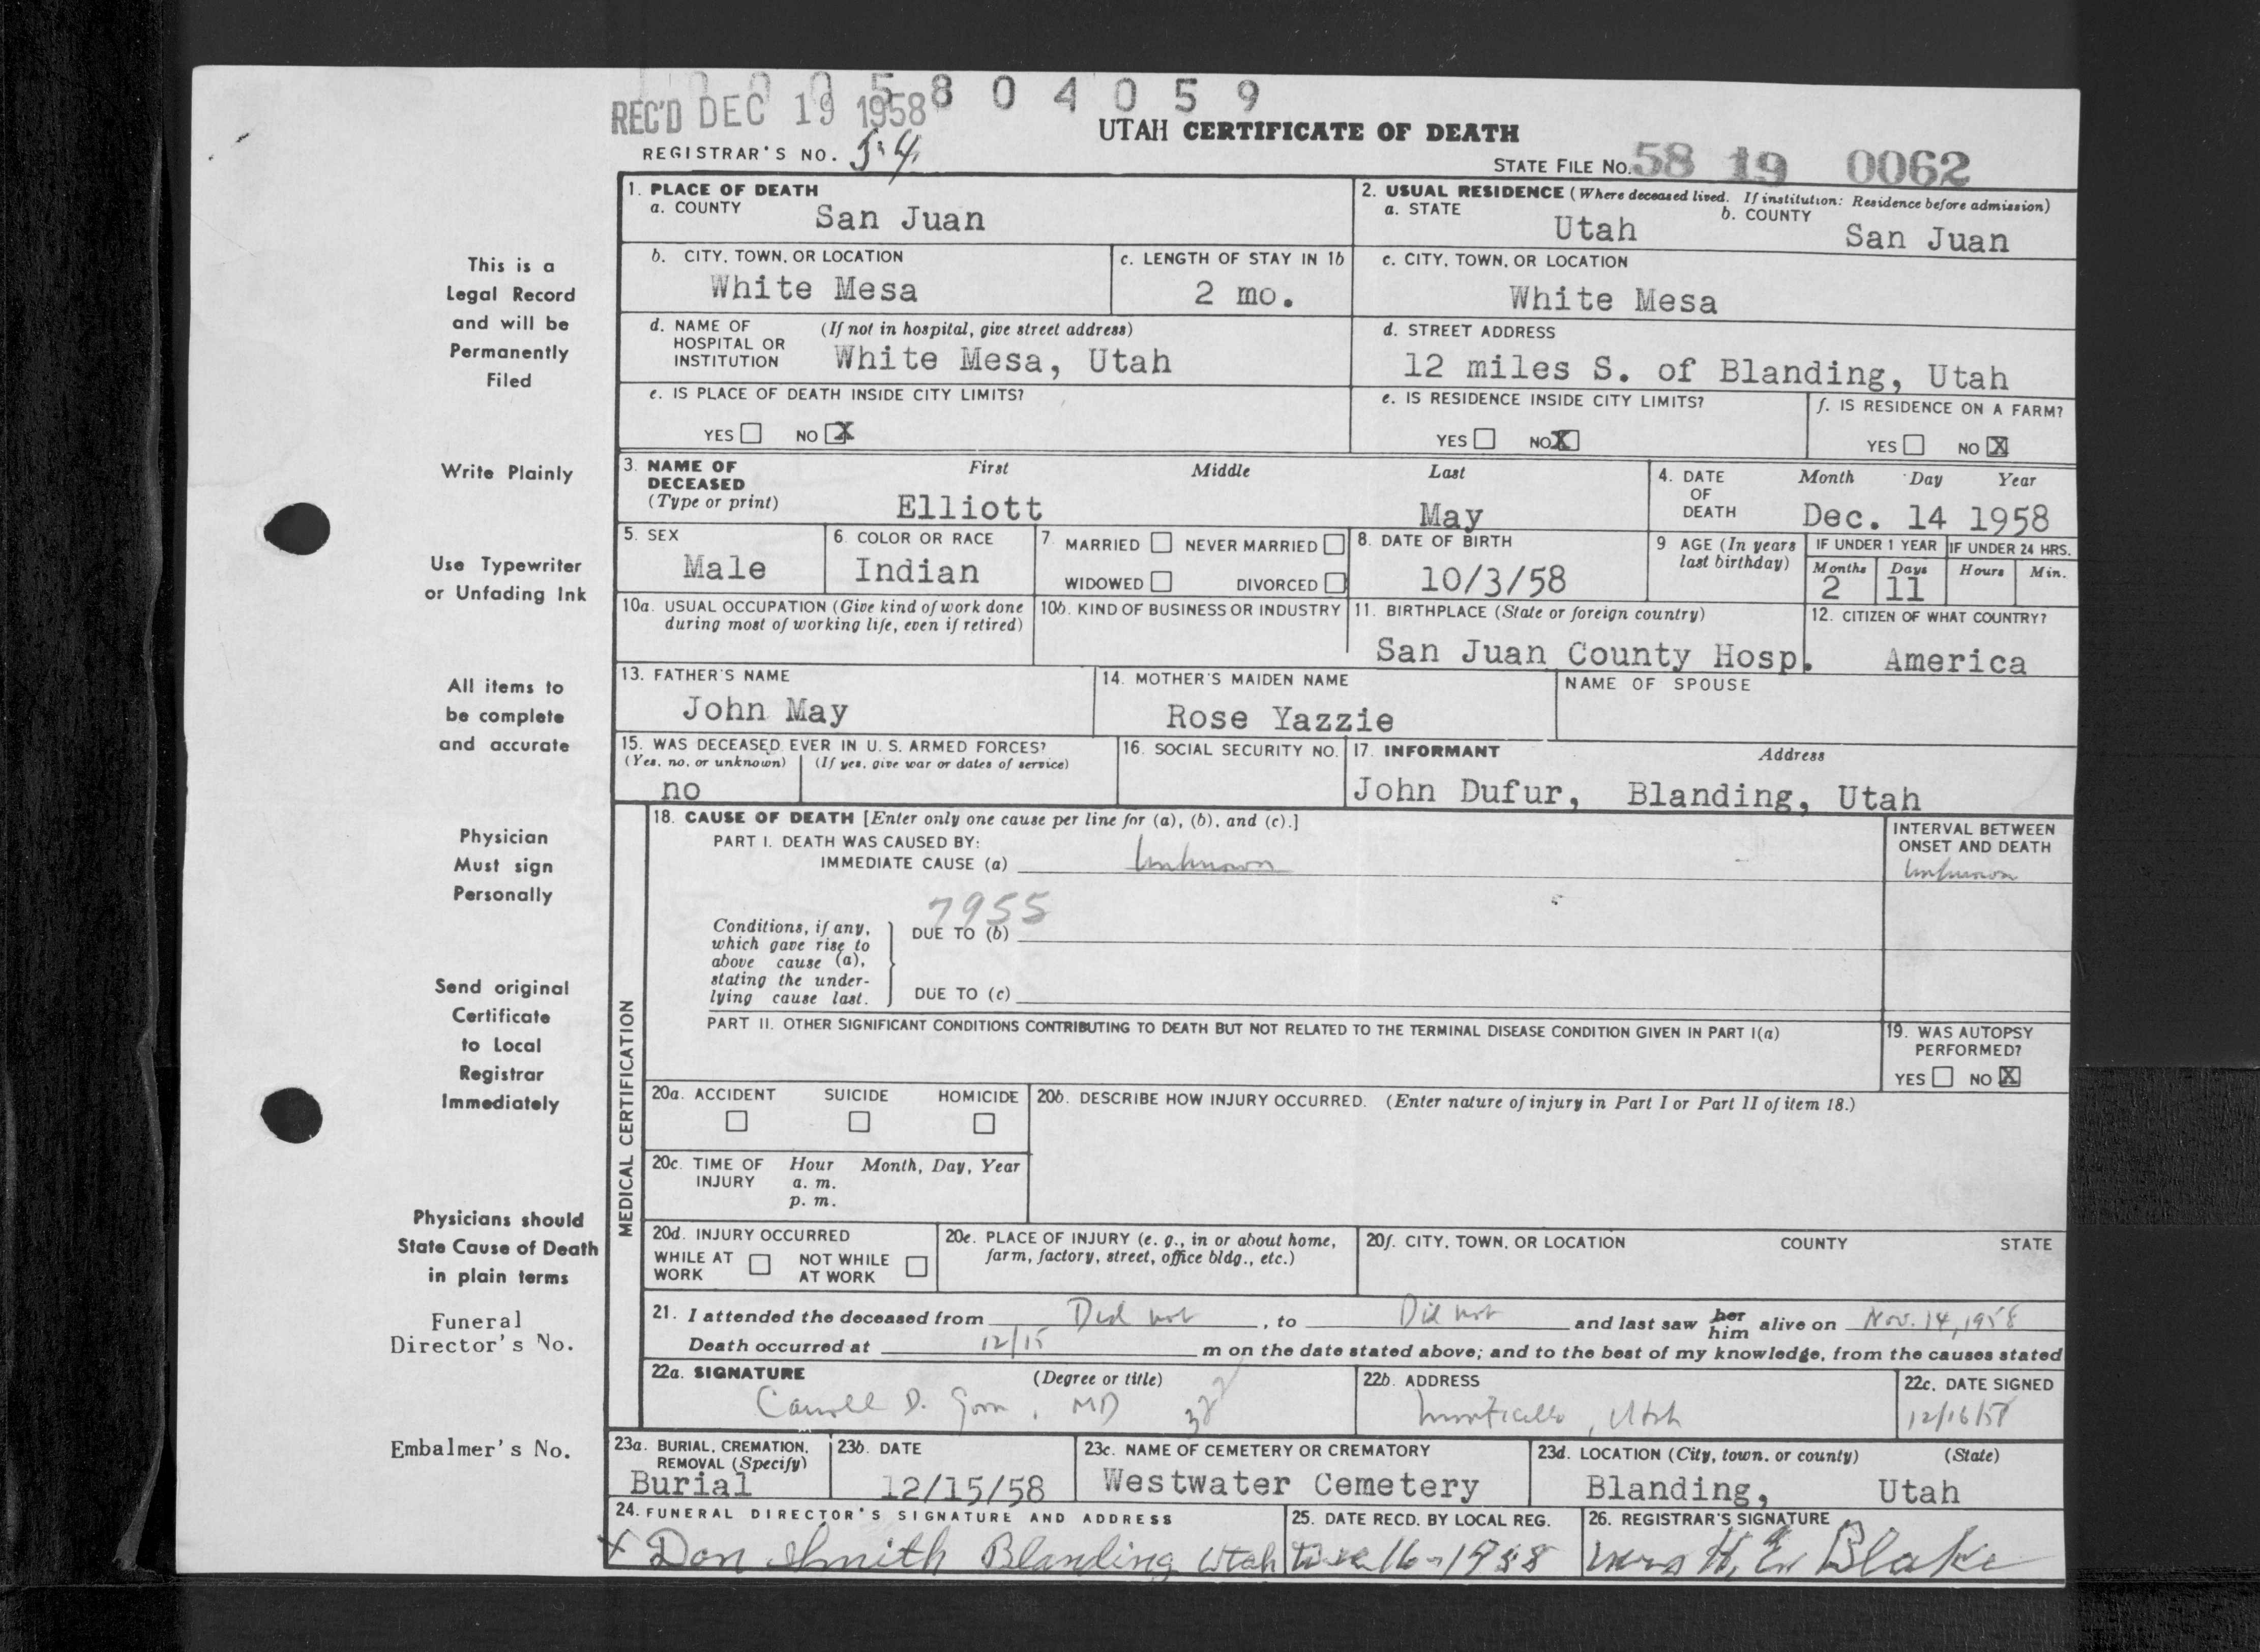 1 0 0 5 8 0 4 0 5 9
REC'D DEC 19 1958
UTAH CERTIFICATE OF DEATH
REGISTRAR'S NO. 54
STATE FILE NO. 58 19 0062
This is a
Legal Record
and will be
Permanently
Filed
Write Plainly
Use Typewriter
or Unfading Ink
All items to
be complete
and accurate
Physician
Must sign
Personally
Send original
Certificate
to Local
Registrar
Immediately
Physicians should
State Cause of Death
in plain terms
Funeral
Director's No.
Embalmer's No.
1. PLACE OF DEATH
a. COUNTY San Juan
2. USUAL RESIDENCE (Where deceased lived. If institution: Residence before admission)
a. STATE Utah b. COUNTY San Juan
b. CITY, TOWN, OR LOCATION White Mesa
c. LENGTH OF STAY IN 1b 2 mo.
c. CITY, TOWN, OR LOCATION White Mesa
d. NAME OF HOSPITAL OR INSTITUTION (If not in hospital, give street address) White Mesa, Utah
d. STREET ADDRESS 12 miles S. of Blanding, Utah
e. IS PLACE OF DEATH INSIDE CITY LIMITS?
YES NO X
e. IS RESIDENCE INSIDE CITY LIMITS?
YES NO X
f. IS RESIDENCE ON A FARM?
YES NO X
3. NAME OF DECEASED (Type or print) First Middle Last
Elliott May
4. DATE OF DEATH Month Day Year
Dec. 14 1958
5. SEX Male
6. COLOR OR RACE Indian
7. MARRIED NEVER MARRIED
WIDOWED DIVORCED
8. DATE OF BIRTH 10/3/58
9 AGE (In years last birthday)
IF UNDER 1 YEAR IF UNDER 24 HRS.
Months Days Hours Min.
2 11
10a. USUAL OCCUPATION (Give kind of work done during most of working life, even if retired)
10b. KIND OF BUSINESS OR INDUSTRY
11. BIRTHPLACE (State or foreign country) San Juan County Hosp.
12. CITIZEN OF WHAT COUNTRY? America
13. FATHER'S NAME John May
14. MOTHER'S MAIDEN NAME Rose Yazzie
NAME OF SPOUSE
15. WAS DECEASED EVER IN U. S. ARMED FORCES?
(Yes, no, or unknown) (If yes, give war or dates of service)
no
16. SOCIAL SECURITY NO.
17. INFORMANT Address
John Dufur, Blanding, Utah
MEDICAL CERTIFICATION
18. CAUSE OF DEATH [Enter only one cause per line for (a), (b), and (c).]
PART I. DEATH WAS CAUSED BY:
IMMEDIATE CAUSE (a) Unknown
INTERVAL BETWEEN ONSET AND DEATH
Unknown
7955
Conditions, if any, which gave rise to above cause (a), stating the underlying cause last.
DUE TO (b)
DUE TO (c)
PART II. OTHER SIGNIFICANT CONDITIONS CONTRIBUTING TO DEATH BUT NOT RELATED TO THE TERMINAL DISEASE CONDITION GIVEN IN PART I(a)
19. WAS AUTOPSY PERFORMED?
YES NO X
20a. ACCIDENT SUICIDE HOMICIDE
20b. DESCRIBE HOW INJURY OCCURRED. (Enter nature of injury in Part I or Part II of item 18.)
20c. TIME OF INJURY Hour Month, Day, Year
a. m.
p. m.
20d. INJURY OCCURRED
WHILE AT WORK NOT WHILE AT WORK
20e. PLACE OF INJURY (e. g., in or about home, farm, factory, street, office bldg., etc.)
20f. CITY, TOWN, OR LOCATION COUNTY STATE
21. I attended the deceased from Did not, to Did not and last saw her him alive on Nov. 14, 1958
Death occurred at 12/15 m on the date stated above; and to the best of my knowledge, from the causes stated
22a. SIGNATURE (Degree or title)
Carroll D. Goon, MD
22b. ADDRESS
Monticello, Utah
22c. DATE SIGNED
12/16/58
23a. BURIAL, CREMATION, REMOVAL (Specify)
Burial
23b. DATE
12/15/58
23c. NAME OF CEMETERY OR CREMATORY
Westwater Cemetery
23d. LOCATION (City, town, or county) (State)
Blanding, Utah
24. FUNERAL DIRECTOR'S SIGNATURE AND ADDRESS
x Don Smith Blanding Utah
25. DATE RECD. BY LOCAL REG.
Dec 16-1958
26. REGISTRAR'S SIGNATURE
Mrs H. E. Blake